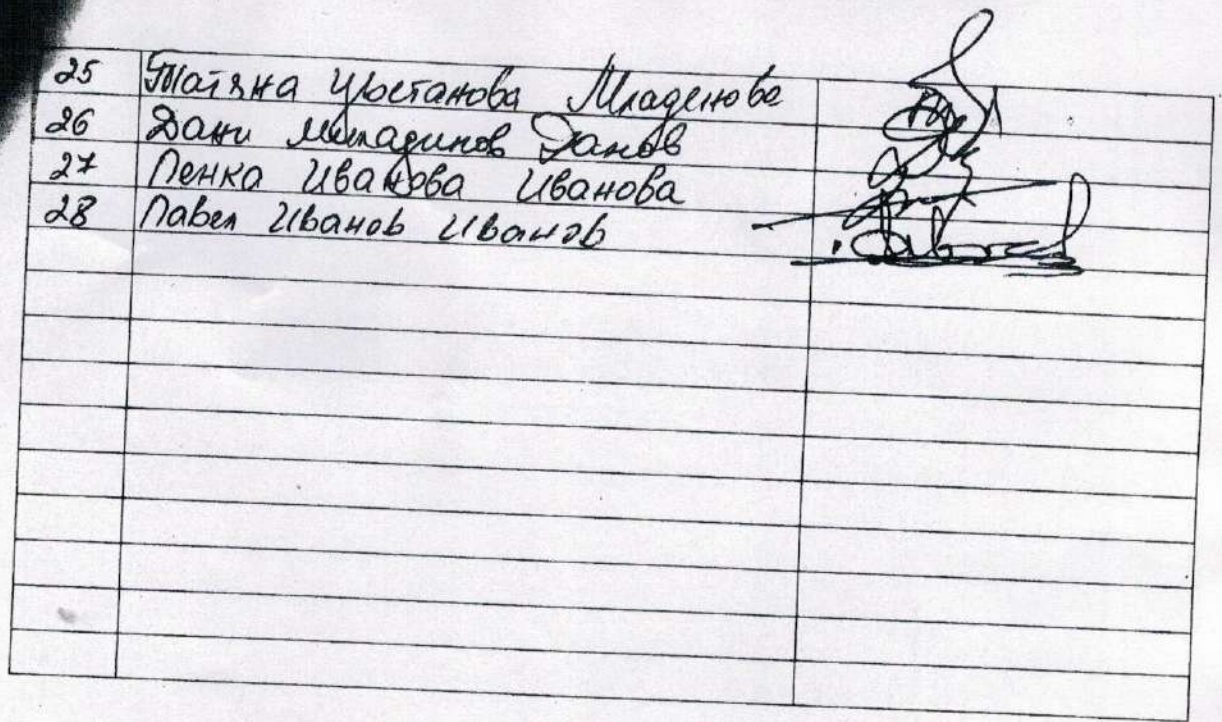 25 Татяна Цветанова Младенова
26 Дани Младинов Данов
27 Пенка Иванова Иванова
28 Павел Иванов Иванов